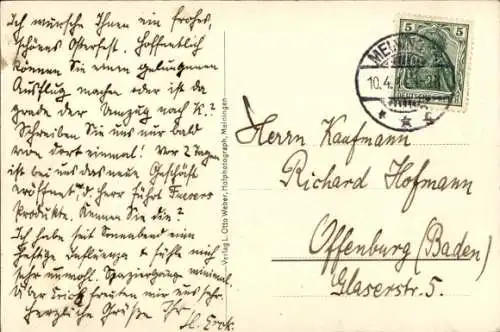 Ich wünsche Ihnen ein frohes,
schönes Osterfest. Hoffentlich
können Sie einen gelungenen
Ausflug machen oder ist da
grade der Umzug nach K.?
Schreiben Sie uns mir bald
von dort einmal! Vor 2 Tagen
ist bei uns das neue Geschäft
eröffnet, d. Herr führt
Produkte. Kennen Sie die?
Ich habe seit Sonnabend eine
heftige Influenza & fühle mich
sehr unwohl. Spaziergänge minimal.
Über freuten wir uns sehr.
Herzliche Grüße Ihr
Verlag: L. Otto Weber, Hofphotograph, Meiningen
5 5
MEININGEN
10.4.
Herrn Kaufmann
Richard Hofmann
Offenburg (Baden)
Glaserstr. 5.